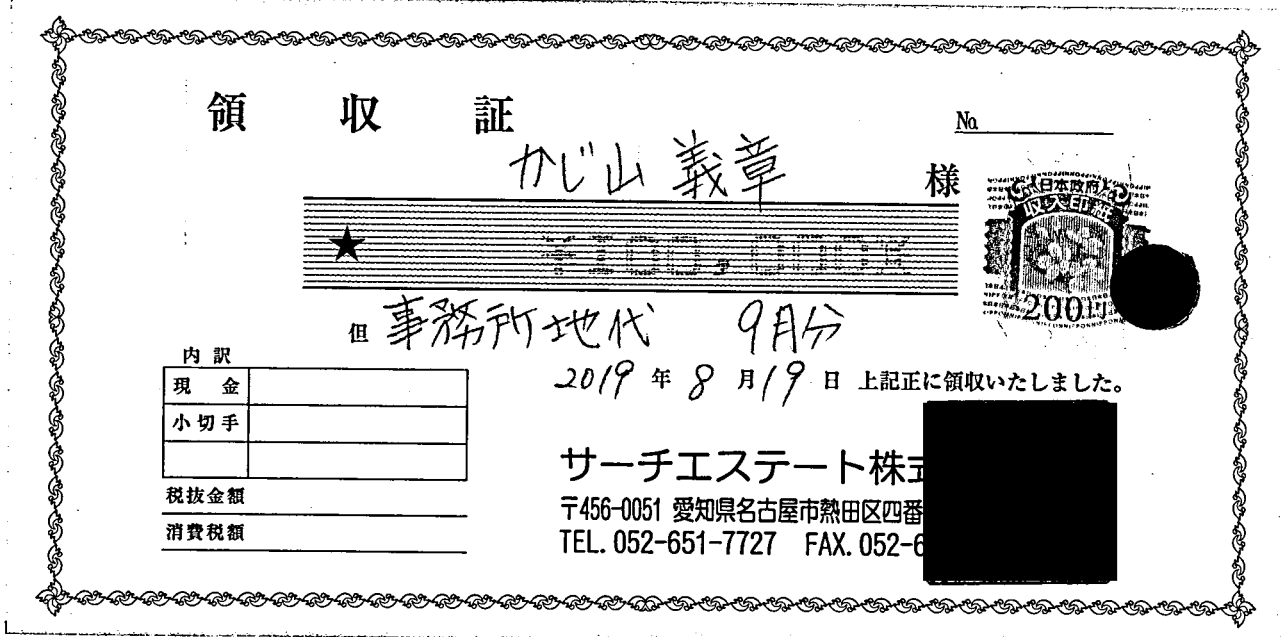 領 収 証
No.
かじ山 義章 様
日本政府
収入印紙
200円
★ ¥100,000※
但 事務所地代 9月分
内 訳
2019 年 8 月 19 日 上記正に領収いたしました。
現 金
小切手
税抜金額
消費税額
サーチエステート株
〒456-0051 愛知県名古屋市熱田区四番
TEL. 052-651-7727 FAX. 052-6